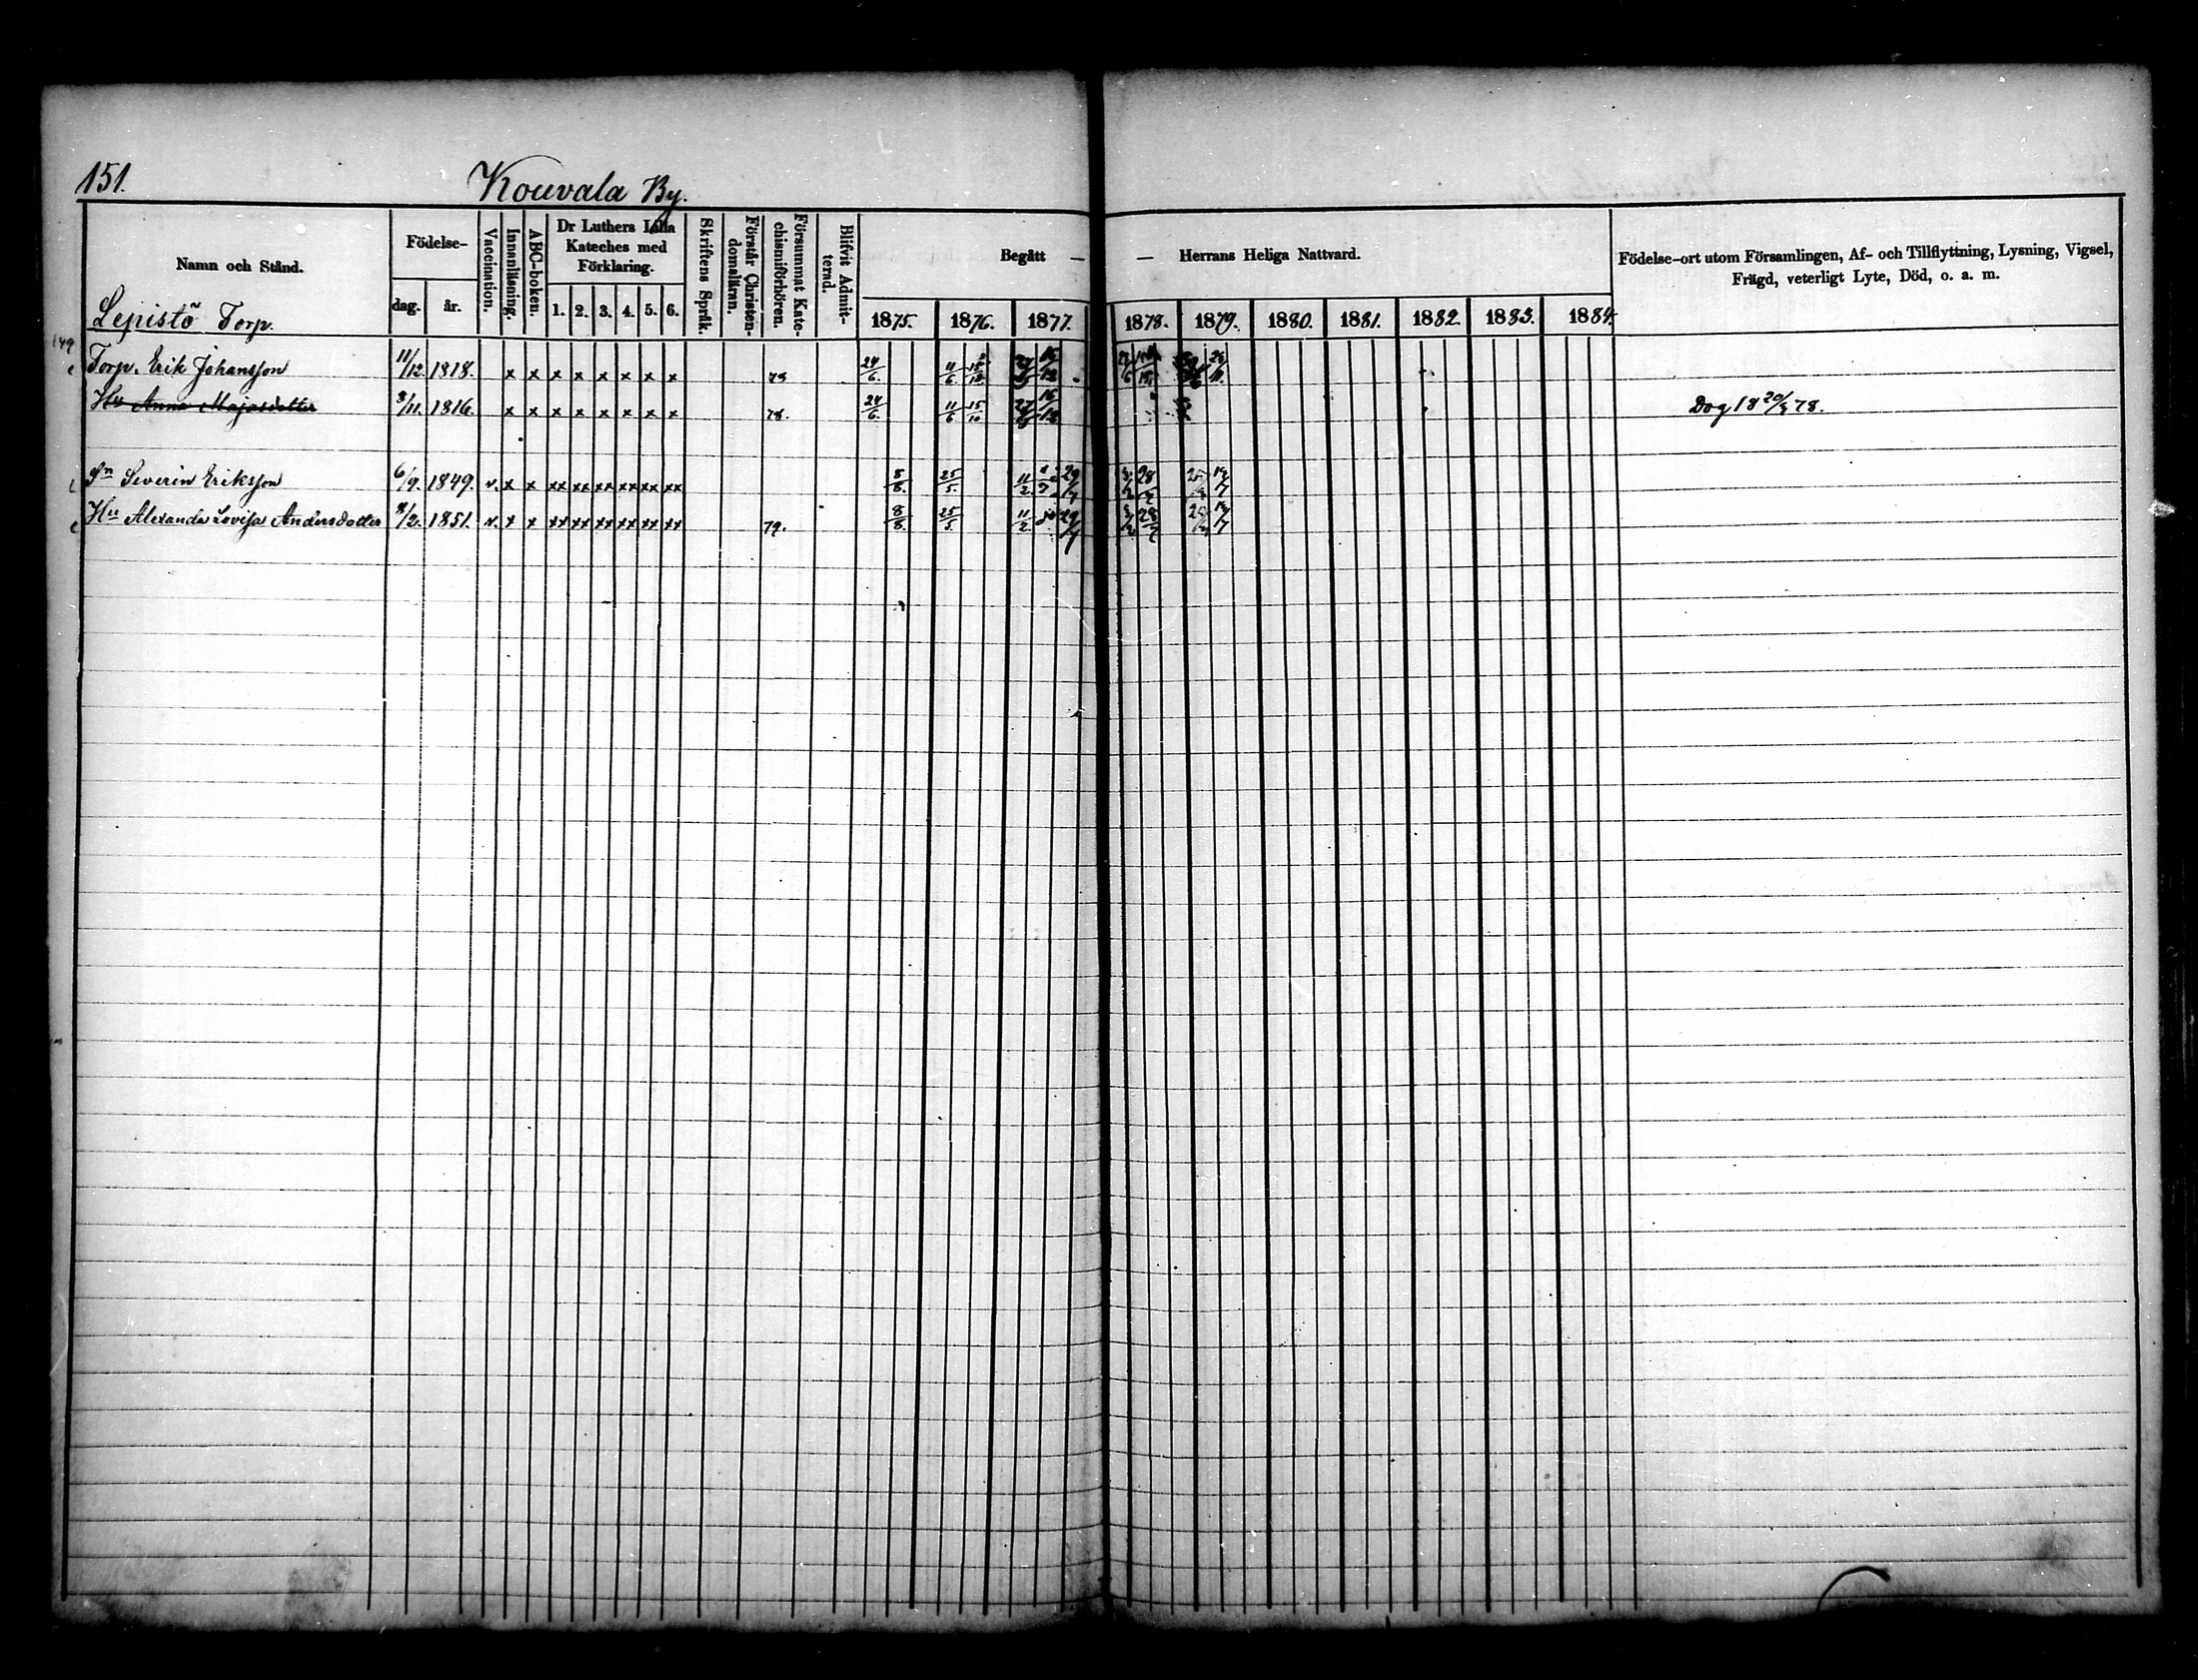 151.
Kouvala By.
Namn och Stånd.
Födelse-
dag.
år.
Vaccination.
Innanläsning.
ABC-boken.
Dr Luthers Lilla
Kateches med
Förklaring.
1. 2. 3. 4. 5. 6.
Skriftens Språk.
Förstår Christen-
domsläran.
Försummat Kate-
chismiförhören.
Blifvit Admit-
terad.
Begått — — Herrans Heliga Nattvard.
1875. 1876. 1877. 1878. 1879. 1880. 1881. 1882. 1883. 1884.
Födelse-ort utom Församlingen, Af- och Tillflyttning, Lysning, Vigsel,
Frägd, veterligt Lyte, Död, o. a. m.
Lepistö Torp.
149
Torp. Erik Johansson 11/12. 1818. x x x x x x x x 24/6. 11/6
Hu Anna Majasdotter 3/11. 1816. x x x x x x x x 78. 24/6. 11/6 15/10 Dog 18 20/3 78.
Sn Severin Eriksson 6/9. 1849. v. x x xx xx xx xx xx xx 8/8. 25/5. 11/2.
Hu Alexandra Lovisa Andersdotter 8/2. 1851. v. x x xx xx xx xx xx xx 79. 8/8. 25/5. 11/2.